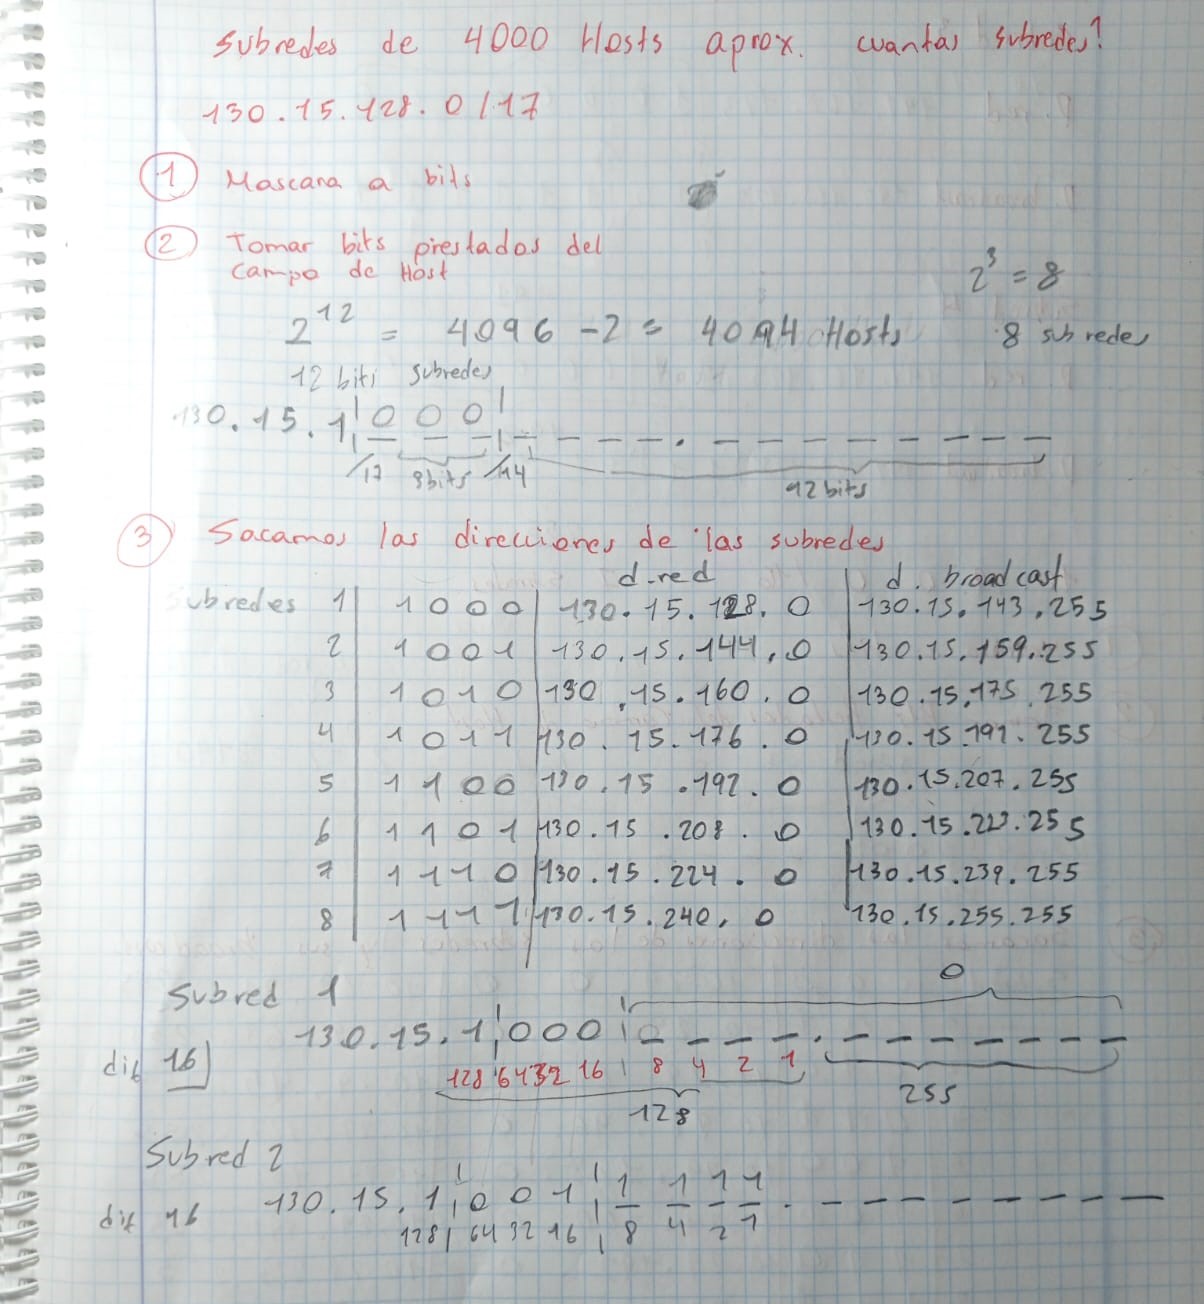 Subredes de 4000 Hosts aprox. cuantas subredes?
130.15.128.0/17
1 Mascara a bits
2 Tomar bits prestados del
campo de Host
2^3 = 8
2^12 = 4096 - 2 = 4094 Hosts
8 subredes
12 bits subredes
130.15.1 0 0 0 _ _ _ _ . _ _ _ _ _ _ _ _
/17 3bits /14 12 bits
3 Sacamos las direcciones de las subredes
d.red d. broadcast
Subredes 1 1000 130.15.128.0 130.15.143.255
2 1001 130.15.144.0 130.15.159.255
3 1010 130.15.160.0 130.15.175.255
4 1011 130.15.176.0 130.15.191.255
5 1100 130.15.192.0 130.15.207.255
6 1101 130.15.208.0 130.15.223.255
7 1110 130.15.224.0 130.15.239.255
8 1111 130.15.240.0 130.15.255.255
0
Subred 1
130.15.1 0 0 0 0 _ _ _ . _ _ _ _ _ _ _ _
dif 16
128 64 32 16 8 4 2 1
255
128
Subred 2
130.15.1 0 0 1 1 1 1 1 . _ _ _ _ _ _ _ _
dif 16
128 64 32 16 8 4 2 1